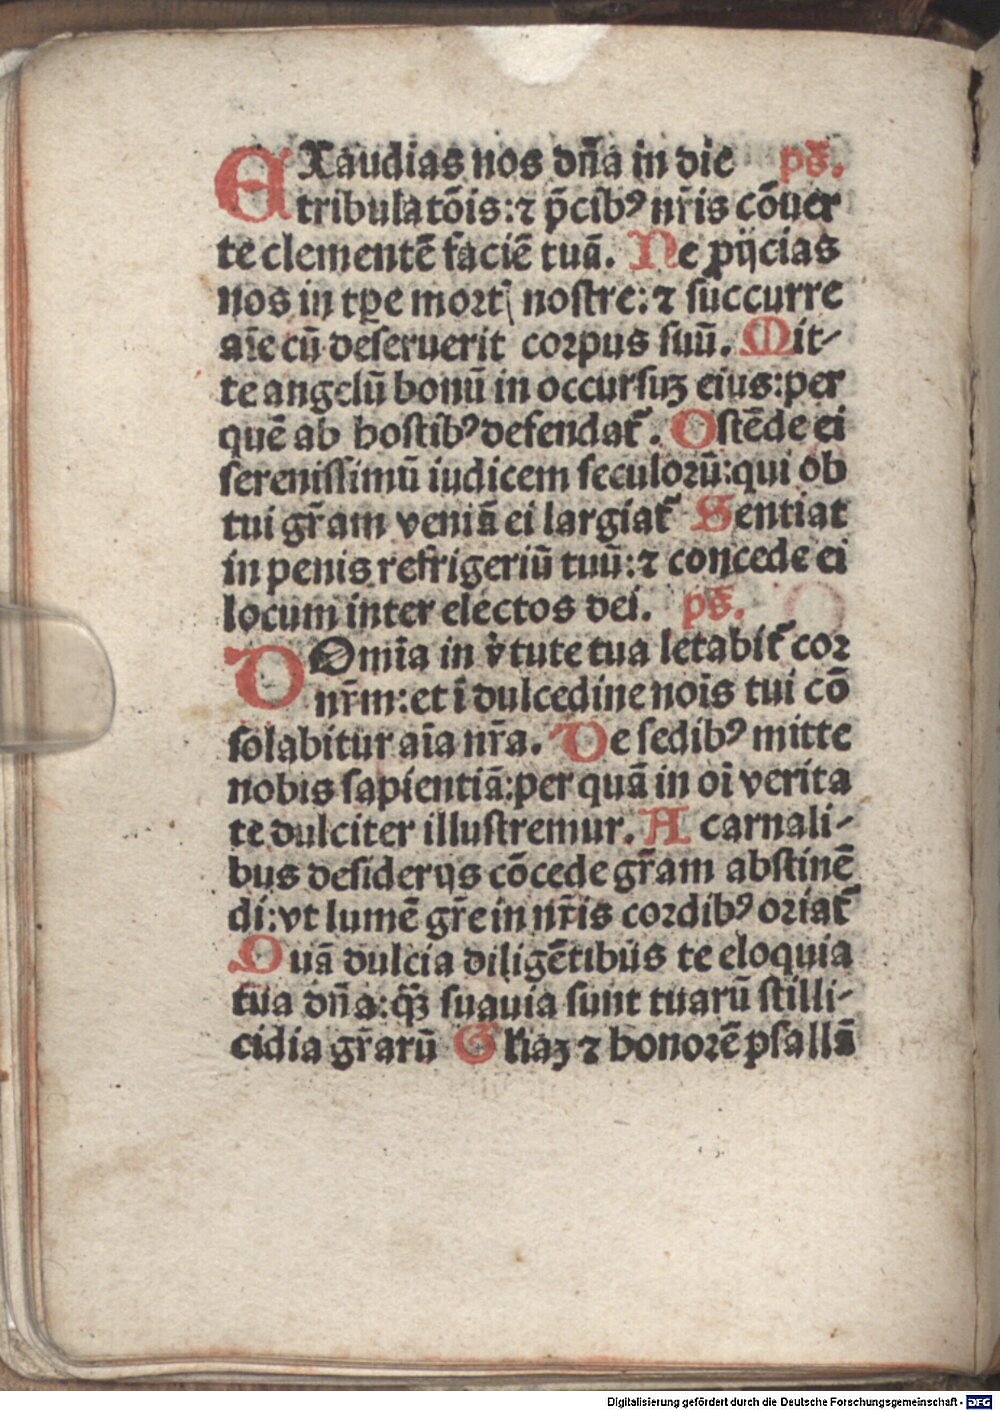 EXaudias nos dn̄a in die ps̄.
tribulatōis: ⁊ p̄cibꝰ nr̄is cōuer
te clementē faciē tuā. Ne ꝓijcias
nos in tꝑe mortꝭ nostre: ⁊ succurre
aīe cū deseruerit corpus suū. Mit-
te angelū bonū in occursuꝫ eius: per
quē ab hostibꝰ defendat᷑. Ostēde ei
serenissimū iudicem seculorū: qui ob
tui gr̄am veniā ei largiat᷑ Sentiat
in penis refrigeriū tuū: ⁊ concede ei
locum inter electos dei. ps̄.
DOmīa in v̓tute tua letabit᷑ cor
nr̄m: et ī dulcedine noīs tui cō
solabitur aīa nr̄a. De sedibꝰ mitte
nobis sapientiā: per quā in oī verita
te dulciter illustremur. A carnali-
bus desiderijs cōcede gr̄am abstinē
di: vt lumē gr̄e in nr̄is cordibꝰ oriat᷑
Quā dulcia diligētibus te eloquia
tua dn̄a: qꝫ̄ suauia sunt tuarū stilli-
cidia gr̄arū Gl̄iaꝫ ⁊ honorē psallā
Digitalisierung gefördert durch die Deutsche Forschungsgemeinschaft - DFG